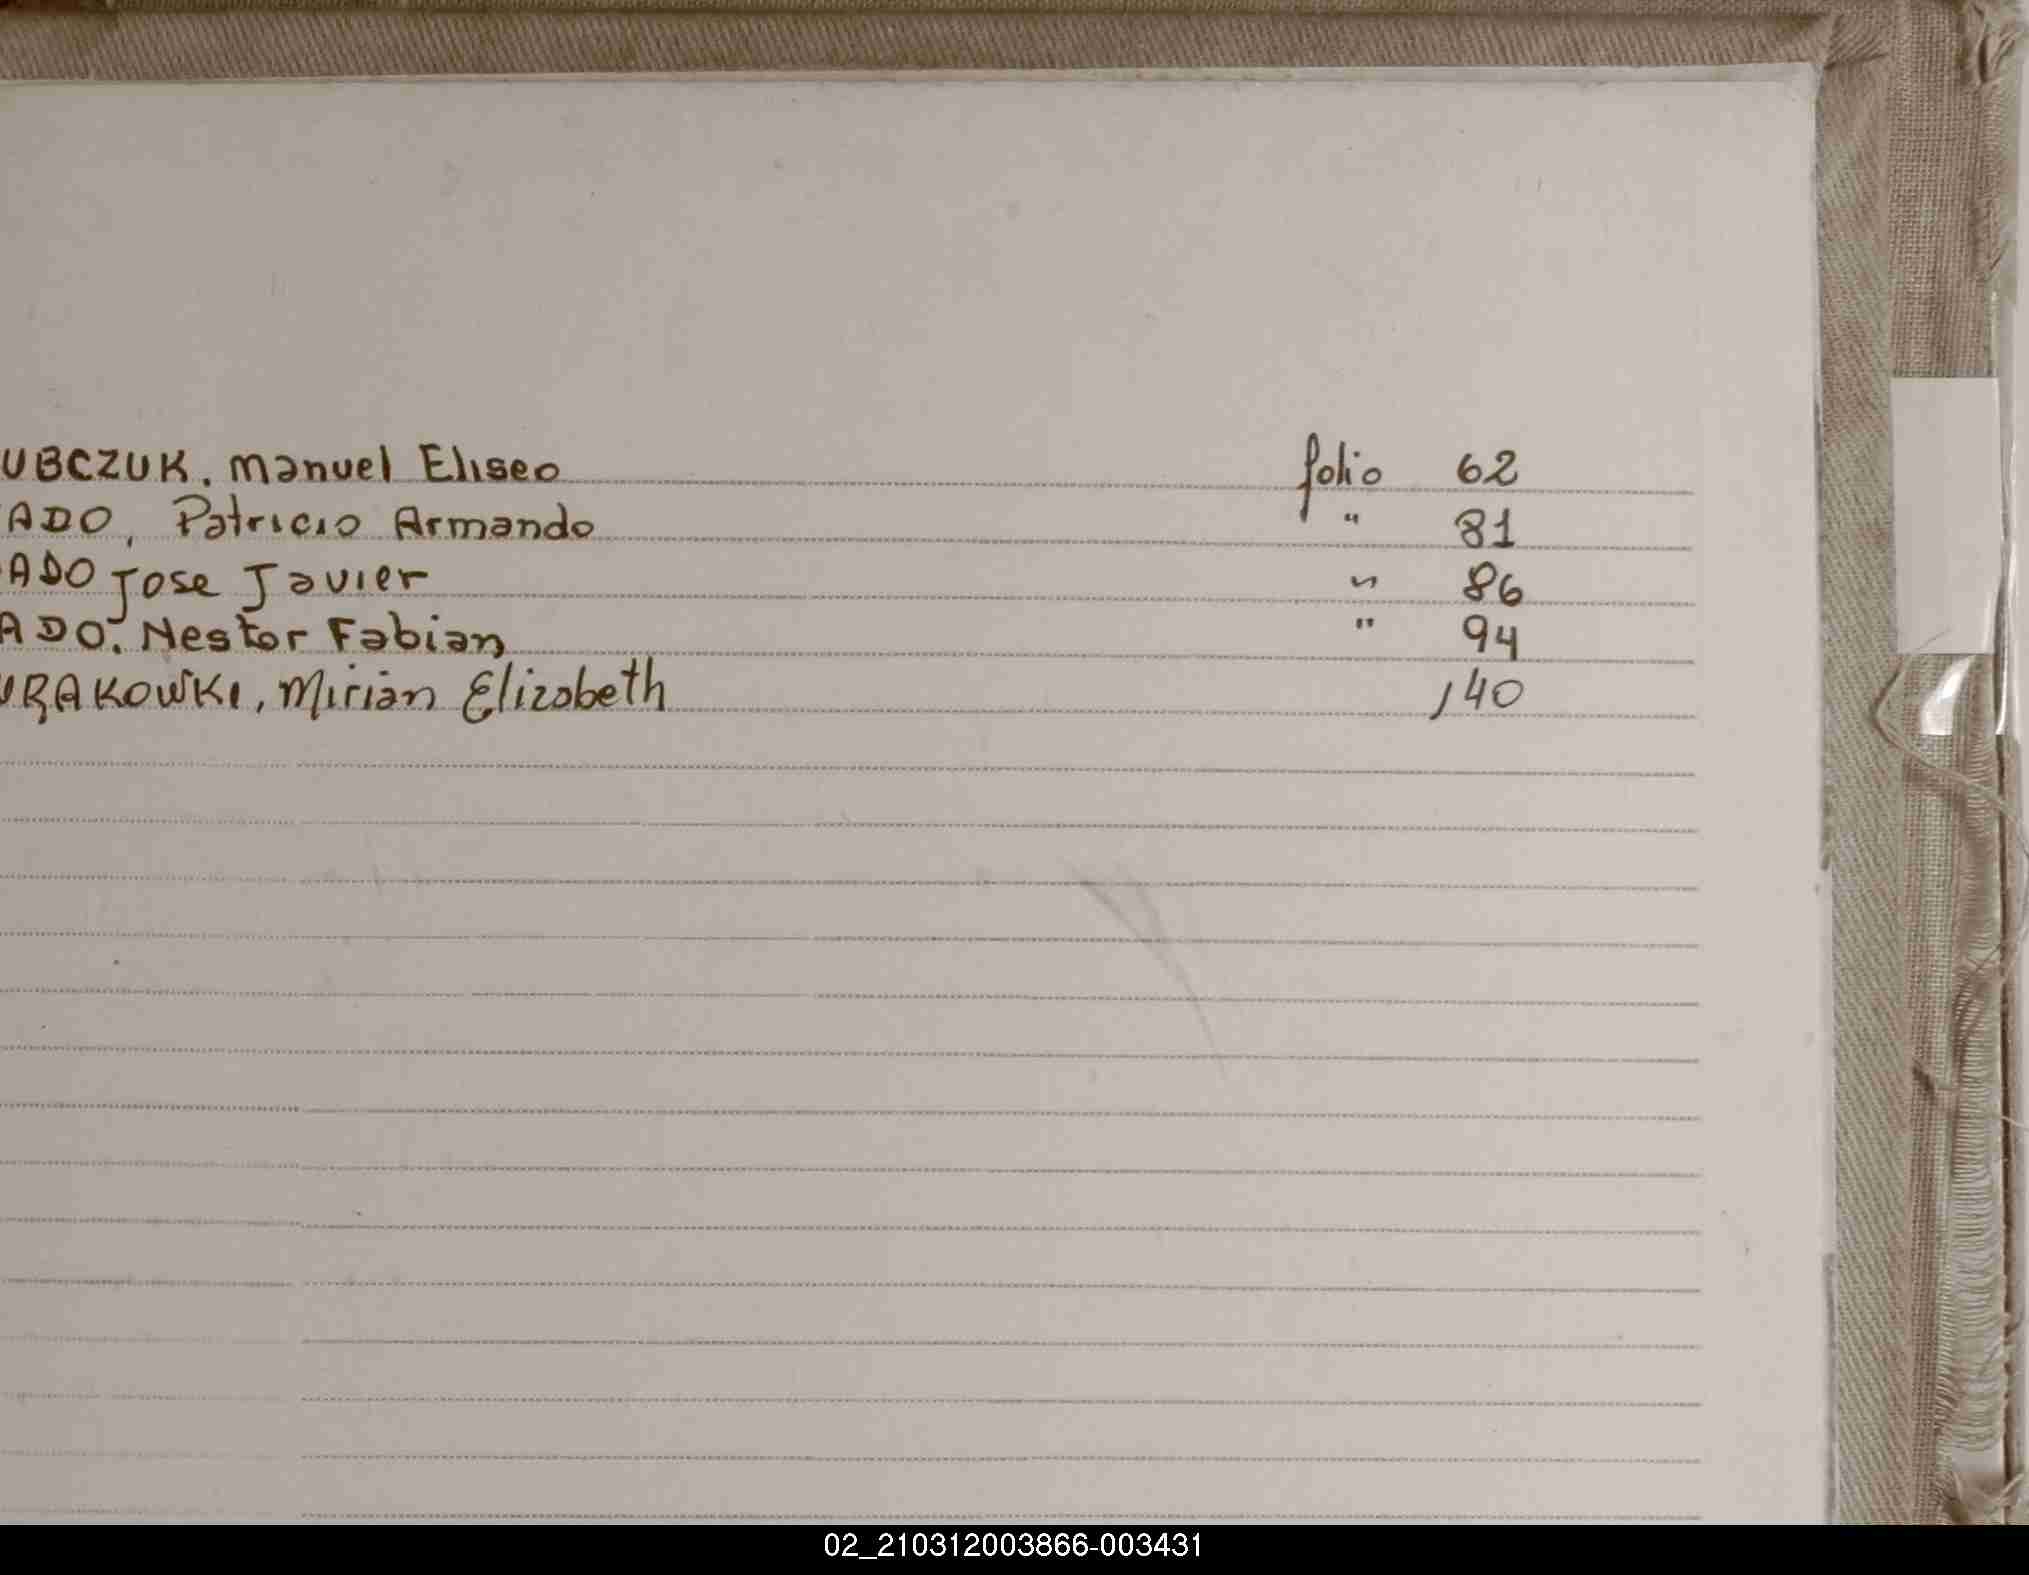 UBCZUK, Manuel Eliseo folio 62
ADO, Patricio Armando " 81
ADO Jose Javier " 86
ADO. Nestor Fabian " 94
URAKOWKI, Mirian Elizabeth 140
02_210312003866-003431